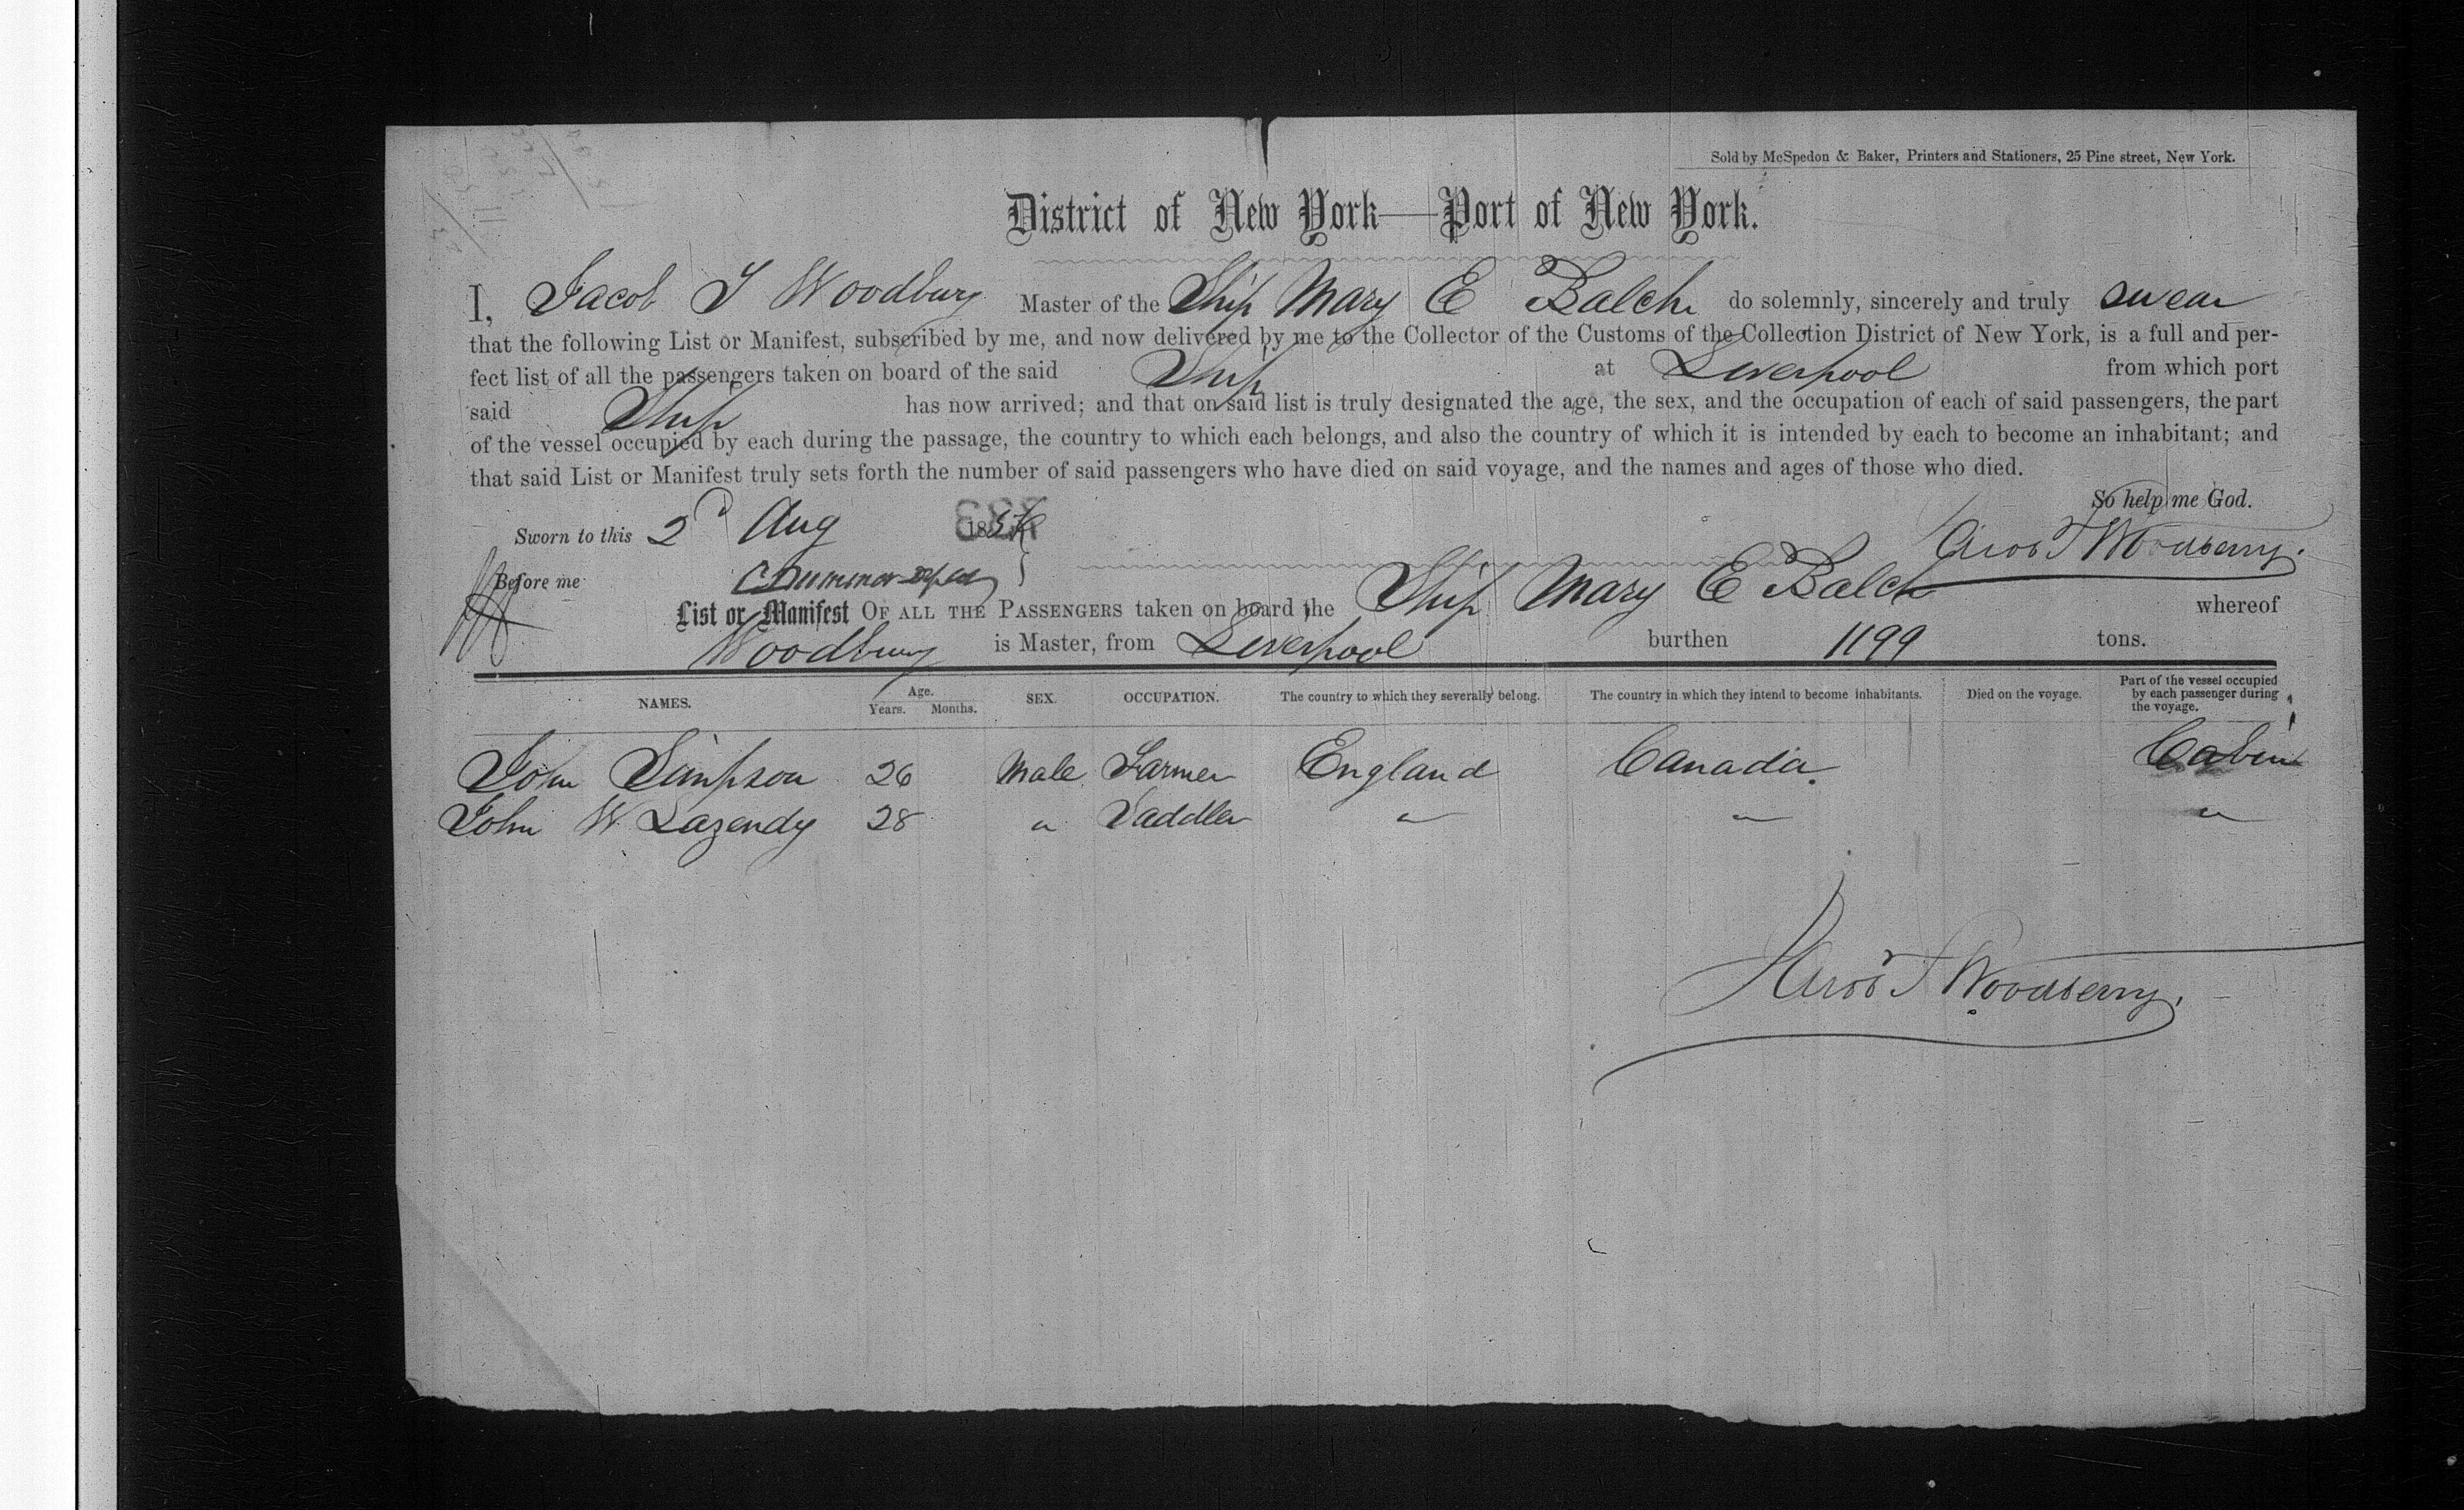 Sold by McSpedon & Baker, Printers and Stationers, 25 Pine street, New York.
District of New York—Port of New York.
I, Jacob T Woodbury Master of the Ship Mary E Balch do solemnly, sincerely and truly swear
that the following List or Manifest, subscribed by me, and now delivered by me to the Collector of the Customs of the Collection District of New York, is a full and per-
fect list of all the passengers taken on board of the said Ship at Liverpool from which port
said Ship has now arrived; and that on said list is truly designated the age, the sex, and the occupation of each of said passengers, the part
of the vessel occupied by each during the passage, the country to which each belongs, and also the country of which it is intended by each to become an inhabitant; and
that said List or Manifest truly sets forth the number of said passengers who have died on said voyage, and the names and ages of those who died.
So help me God.
Sworn to this 2d Aug 185
Jacob T Woodberry.
Before me
List or Manifest OF ALL THE PASSENGERS taken on board the Ship Mary E Balch whereof
Woodbury is Master, from Liverpool burthen 1199 tons.
NAMES. Age. Years. Months. SEX. OCCUPATION. The country to which they severally belong. The country in which they intend to become inhabitants. Died on the voyage. Part of the vessel occupied by each passenger during the voyage.
John Simpson 26 Male Farmer England Canada Cabin
John W Lazendy 28 " Saddler " " "
Jacob T Woodberry.